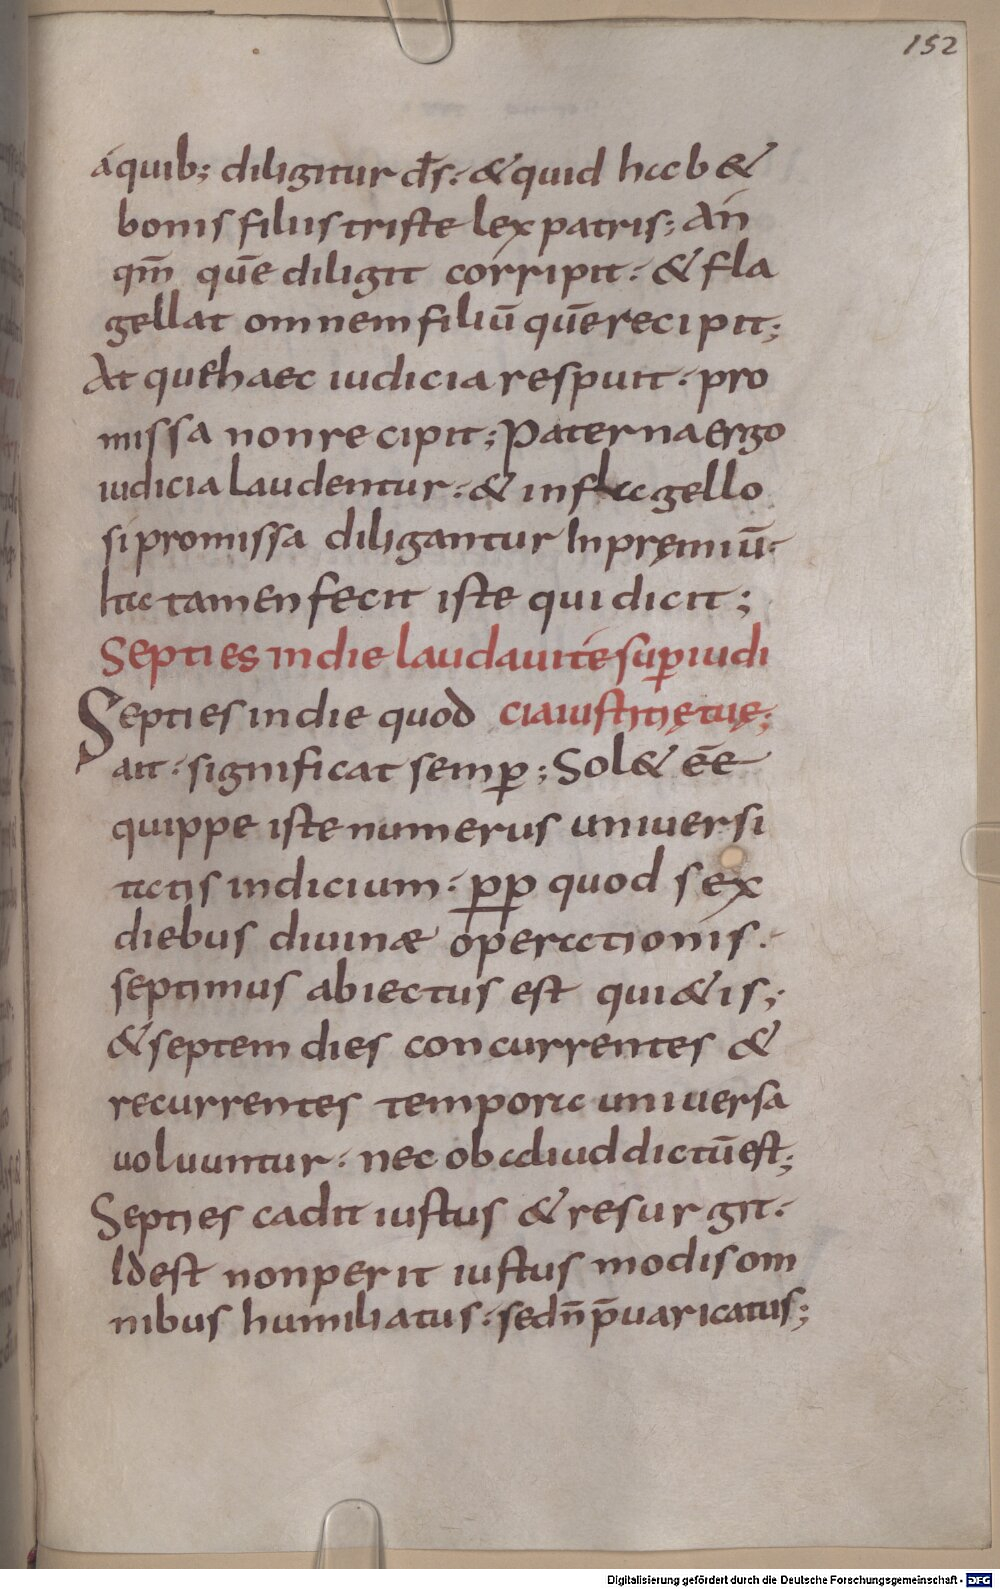 152
a quib; diligitur d̄s. & quid hab&
bonis filiis triste lex patris; An
qm̄ quē diligit corripit. & fla
gellat omnem filiū quē recipit;
At qui haec iudicia respuit. pro
missa non recipit; Paterna ergo
iudicia laudentur. & in flagello
si promissa diligantur In pręmiū.
hac tamen fecit iste qui dicit;
Septies in die laudaui te sup̱ iudi
cia iustitię tuę;
Septies in die quod
ait. significat semp̱; Sol& ēē
quippe iste numerus uniuersi
tatis indicium. p̱p̱ quod sex
diebus diuinae operationis.
septimus abiectus est qui&is;
& septem dies concurrentes &
recurrentes tempora uniuersa
uoluuntur. nec ob aliud dictū est;
Septies cadit iustus & resurgit.
Idest non perit iustus modis om
nibus humiliatus. sed n̄ p̄uaricatus;
Digitalisierung gefördert durch die Deutsche Forschungsgemeinschaft - DFG